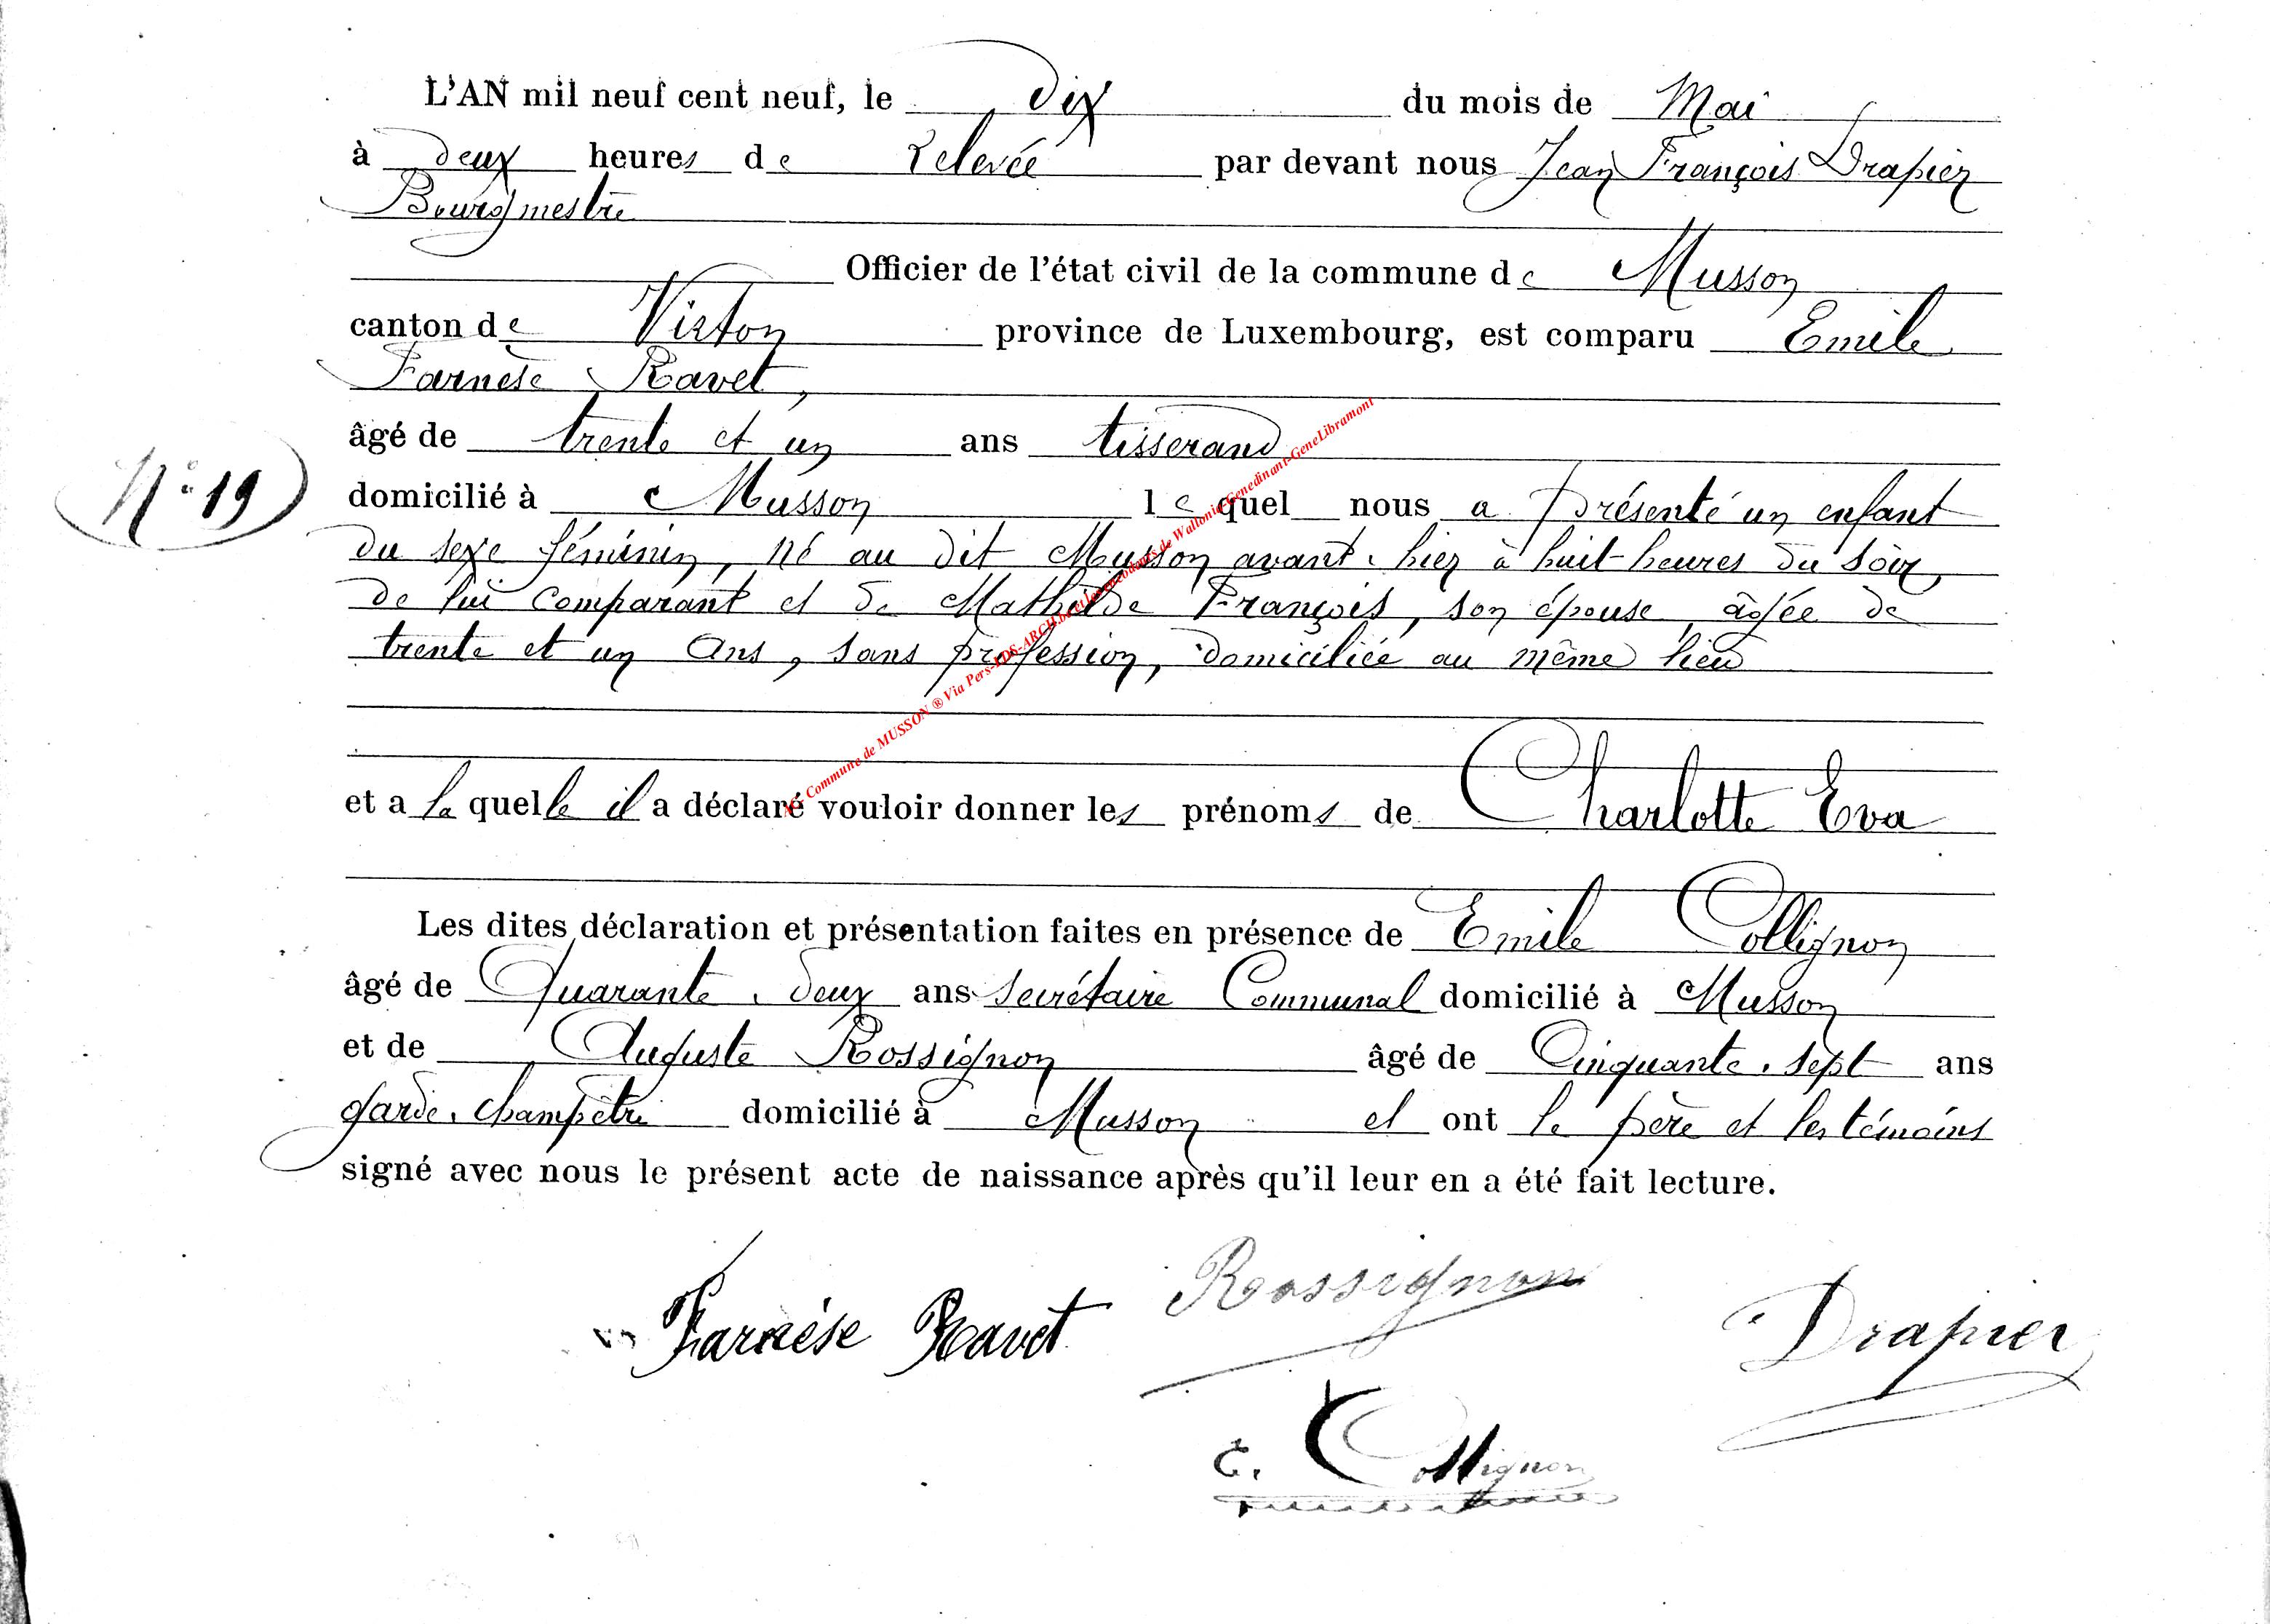 L'AN mil neuf cent neuf, le Dix du mois de Mai
à Deux heures de Relevée par devant nous Jean François Drapier
Bourgmestre
Officier de l'état civil de la commune de Musson
canton de Virton province de Luxembourg, est comparu Emile
Farnèse Ravet,
âgé de trente et un ans tisserand
N° 19
domicilié à Musson lequel nous a présenté un enfant
du sexe féminin, né au dit Musson avant-hier à huit heures du soir,
de lui comparant et de Mathilde François, son épouse, âgée de
trente et un ans, sans profession, domiciliée au même lieu
et a la quelle il a déclaré vouloir donner les prénoms de Charlotte Eva
Les dites déclaration et présentation faites en présence de Emile Collignon
âgé de Quarante-deux ans secrétaire Communal domicilié à Musson
et de Auguste Rossignon âgé de Cinquante-sept ans
garde-champêtre domicilié à Musson et ont le père et les témoins
signé avec nous le présent acte de naissance après qu'il leur en a été fait lecture.
Farnèse Ravet Rossignon Drapier
E. Collignon
Commune de MUSSON ® Via Pers-FDS-ARCH.be et les de Wallonie-Genedinant-GeneLibramont